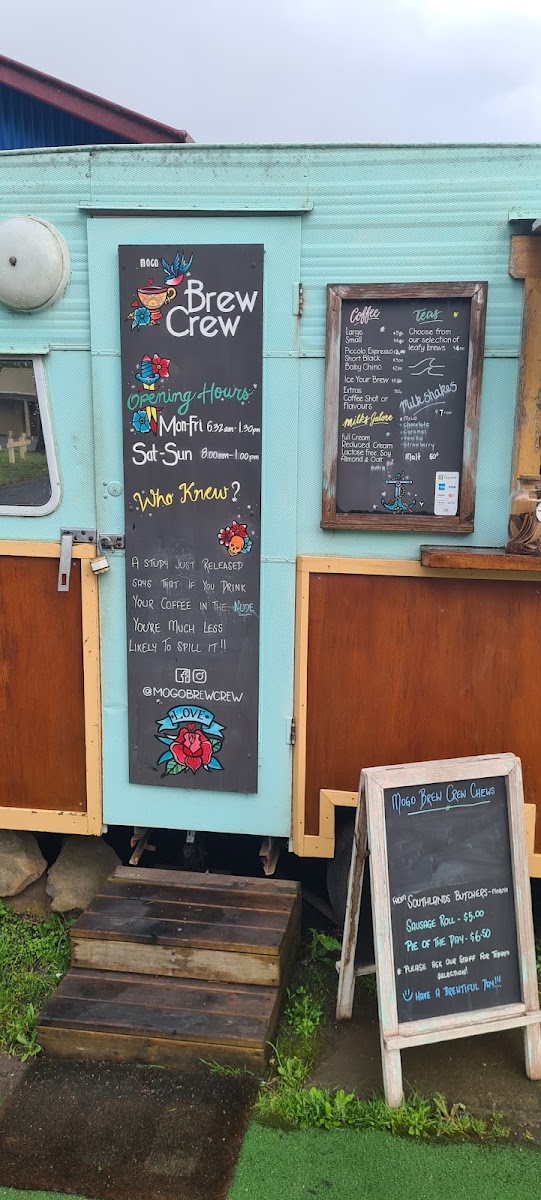 MOGO
Brew
Crew
Opening Hours
Mon-Fri 6.32am-1.30pm
Sat-Sun 8:00am-1:00pm
Who Knew?
A STUDY JUST RELEASED
SAYS THAT IF YOU DRINK
YOUR COFFEE IN THE NUDE
YOU'RE MUCH LESS
LIKELY TO SPILL IT!!
@MOGOBREWCREW
LOVE
Coffee
Large
Small
Piccolo, Espresso
Short Black
Baby Chino
Ice Your Brew
Extras
Coffee Shot or
Flavours
Milks Galore
Full Cream
Reduced Cream
Lactose free, Soy
Almond & Oat
extra
Teas
Choose from
our selection of
leafy brews
Milkshakes
$7
Milo
Chocolate
Caramel
Vanilla
Strawberry
Malt 60¢
MOGO BREW CREW CHEWS
FROM SOUTHLANDS BUTCHERS-
SAUSAGE ROLL - $5.00
PIE OF THE DAY - $6.50
* PLEASE ASK OUR STAFF FOR TODAYS
SELECTION!
HAVE A BREWTIFUL DAY!!!